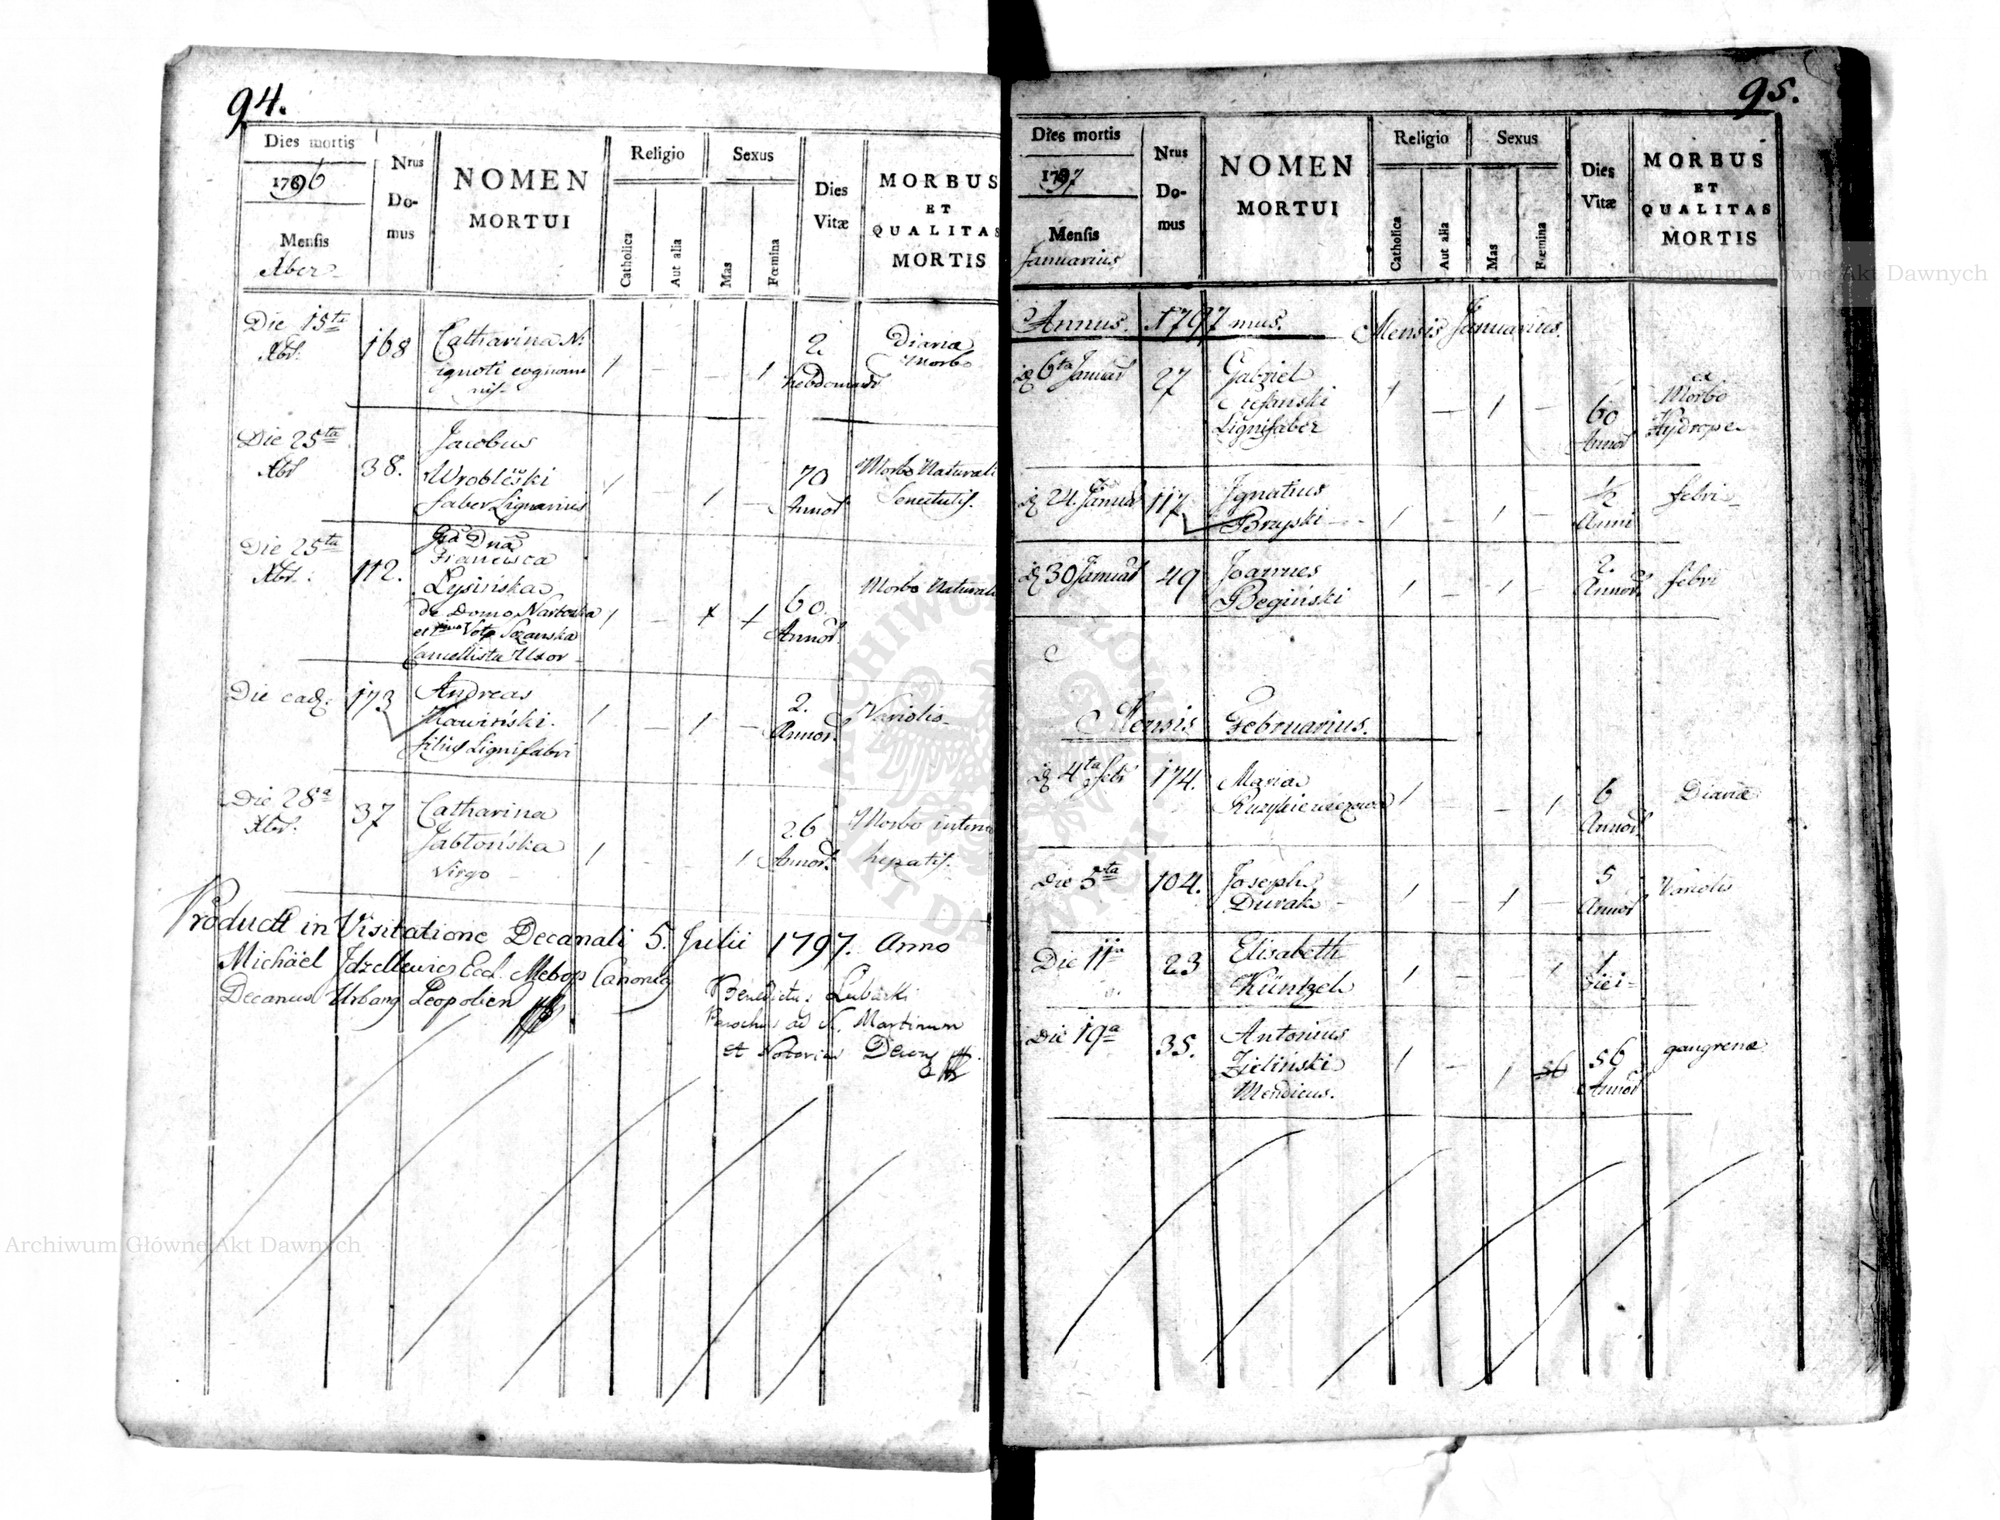 94.
Dies mortis
1796
Mensis
Xber
Nrus
Do-
mus
NOMEN
MORTUI
Religio
Catholica
Aut alia
Sexus
Mas
Fœmina
Dies
Vitæ
MORBUS
ET
QUALITAS
MORTIS
Die 15ta
Xbr.
168
Catharina N.
ignoti cognomi
nis
1 - - 1
2
hebdomad
Diaria
Morbo
Die 25ta
Xbr
38.
Jacobus
Wroblewski
faber Lignarius
1 - 1 -
70
Annor
Morbo Naturali
Senectutis.
Die 25ta
Xbr.:
112.
Dna
Francisca
Lysińska
de Domo
et Voto
Cancellista Uxor
1 - 1
60.
Annor
Morbo Naturali
Die ead:
173
Andreas
filius Lignifabri
1 - 1 -
2.
Annor.
Variolis
Die 28a
Xbr.
37
Catharina
Jabłońska
Virgo
1 - - 1
26
Annor.
Morbo interno
hepatis.
Product in Visitatione Decanali 5. Julii 1797. Anno
Michäel Eccl. Metrop Canonic
Decanus Urban Leopolien
Benedictus Lubarski
Parochus ad S. Martinum
et Notarius Decan
95.
Dies mortis
1797
Mensis
Januarius
Nrus
Do-
mus
NOMEN
MORTUI
Religio
Catholica
Aut alia
Sexus
Mas
Fœmina
Dies
Vitæ
MORBUS
ET
QUALITAS
MORTIS
Annus. 1797 mus. Mensis Januarius.
6ta Januar
27
Gabriel
Stefanski
Lignifaber
1 - 1 -
60
Annor
ex
Morbo
Hydrope
24. Januar
117
Ignatius
Bryski
1 - 1 -
1/2
Anni
febri
30 Januar
49
Joannes
Begiński
1 - 1 -
2.
Annor
febri
Mensis Februarius.
4ta febr
174.
Maria
1 - - 1
6
Annor
Diaria
Die 5ta
104.
Joseph
Durak
1 - 1 -
5
Annor
Variolis
Die 11a
23
Elisabeth
Küntzel
1 - - 1
1
Diei
Die 19a
35.
Antonius
Zieliński
Mendicus.
1 - 1
56
Annor
gangrena
Archiwum Główne Akt Dawnych
Archiwum Główne Akt Dawnych
ARCHIWUM GŁÓWNE AKT DAWNYCH